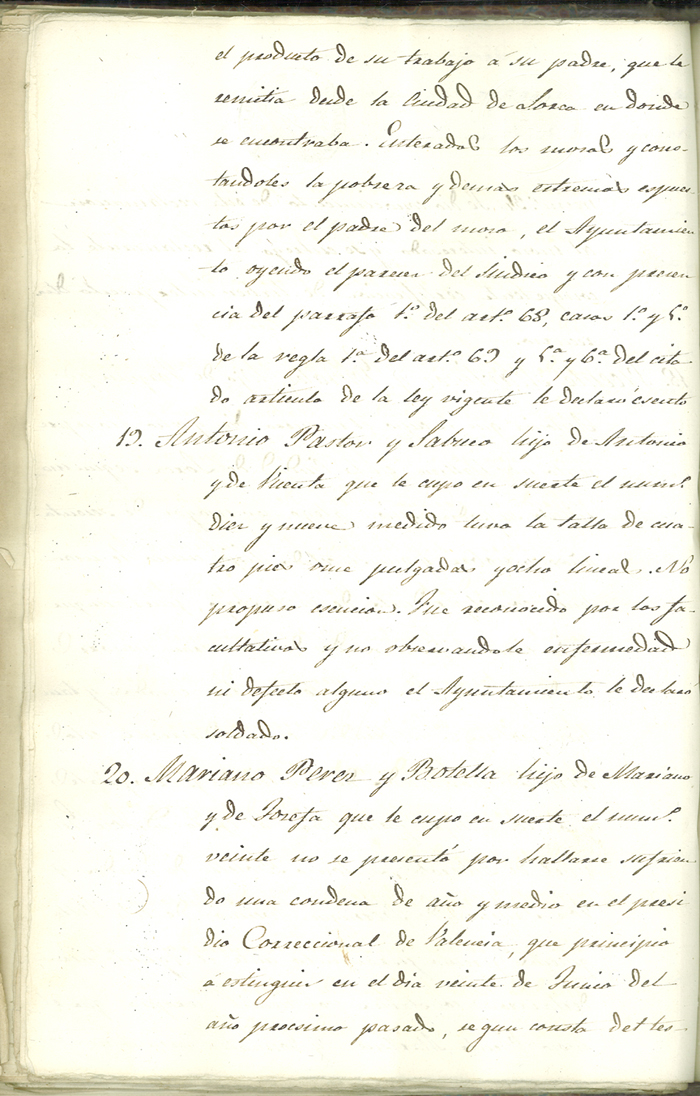 el producto de su trabajo á su padre, que le
remitia desde la Ciudad de Lorca en donde
se encontraba. Enterados los mosos y cons-
tandoles la pobresa y demas estremos espues
tos por el padre del moso, el Ayuntamien
to oyendo el parecer del Sindico y con presen
cia del parrafo 1.º del art.º 68, casos 1.º y 5.º
de la regla 1.ª del art.º 69 y 5.ª y 6.ª del cita
do articulo de la ley vigente le declaró esento
19. Antonio Pastor y Sabuco hijo de Antonio
y de Vicenta que le cupo en suerte el num.º
dies y nueve medido tuvo la talla de cua-
tro pies onse pulgadas y ocho lineas. No
propuso esencion. Fue reconocido por los fa-
cultativos y no observandole enfermedad
ni defecto alguno el Ayuntamiento le declaró
soldado.
20. Mariano Peres y Botella hijo de Mariano
y de Josefa que le cupo en suerte el num.º
veinte no se presentó por hallarse sufrien
do una condena de año y medio en el presi
dio Correccional de Valencia, que principio
á estinguir en el dia veinte de Junio del
año procsimo pasado, segun consta del tes-